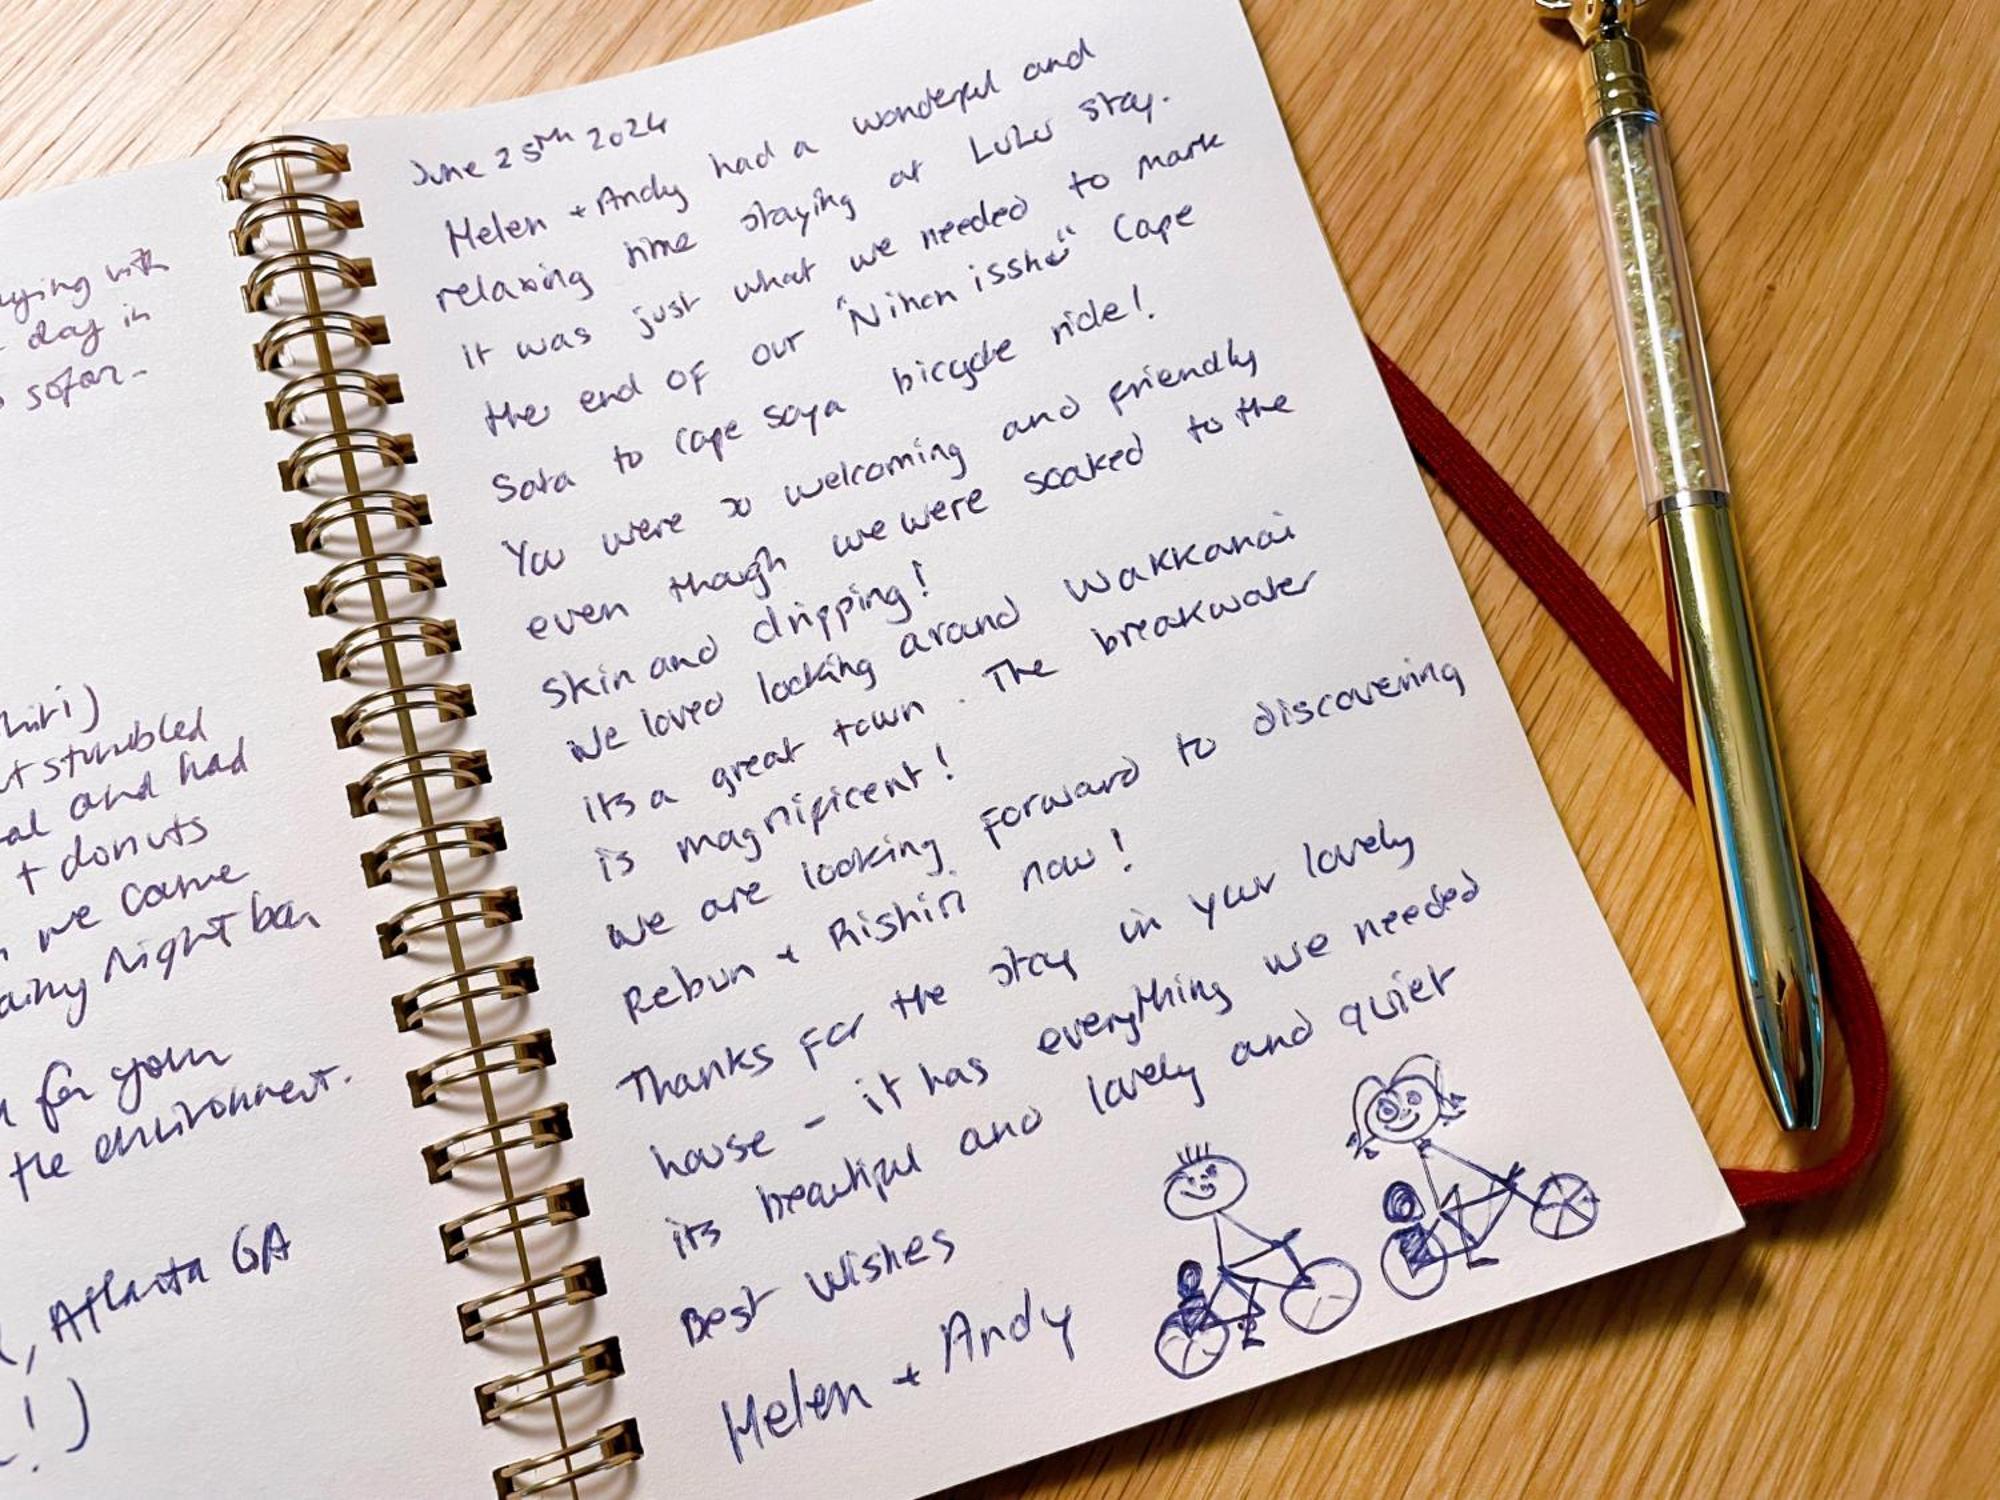 ying with
day in
sofar-
hiri)
t stumbled
al and had
+ donuts
we came
Night bar
for your
the environment.
, Atlanta GA
!)
June 25th 2024
Helen + Andy had a wonderful and
relaxing time staying at LuLu stay.
it was just what we needed to mark
the end of our "Nihon isshū" Cape
Sata to Cape Soya bicycle ride!
You were so welcoming and friendly
even though we were soaked to the
skin and dripping!
We loved looking around Wakkanai
its a great town. The breakwater
is magnificent!
We are looking forward to discovering
Rebun + Rishiri now!
Thanks for the stay in your lovely
house - it has everything we needed
its beautiful and lovely and quiet
Best Wishes
Helen + Andy